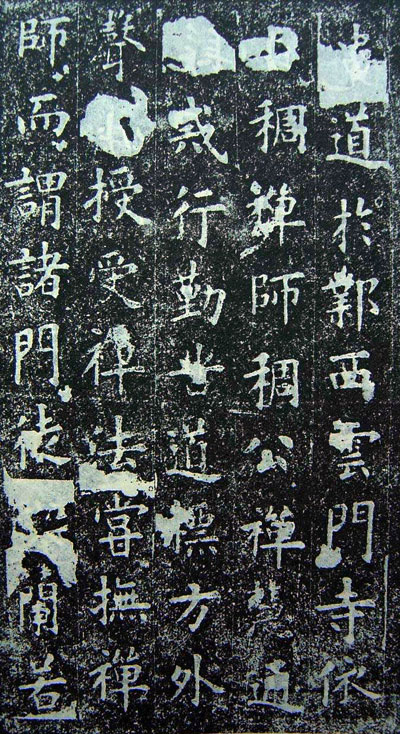 道於鄴西雲門寺依
稠禪師稠公禪慧通
戒行勤苦道標方外
聲授受禪法嘗撫禪
師而謂諸門徒